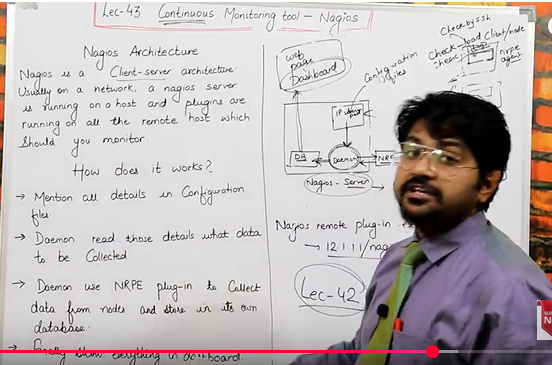 Lec-43 Continuous Monitoring tool - Nagios
Nagios Architecture
Nagios is a Client-server architecture.
Usually on a network, a nagios server
is running on a host and plugins are
running on all the remote host which
should you monitor
How does it works?
→ Mention all details in Configuration
files
→ Daemon read those details what data
to be Collected
→ Daemon use NRPE plug-in to Collect
data from nodes and store in its own
database.
→ Finally show everything in dashboard.
web
page
Dashboard
Configuration
files
IP
DB
Daemon
Nagios - Server
check by ssh
check-load
Client/node
nrpe
agent
Nagios remote plug-in
Lec-42